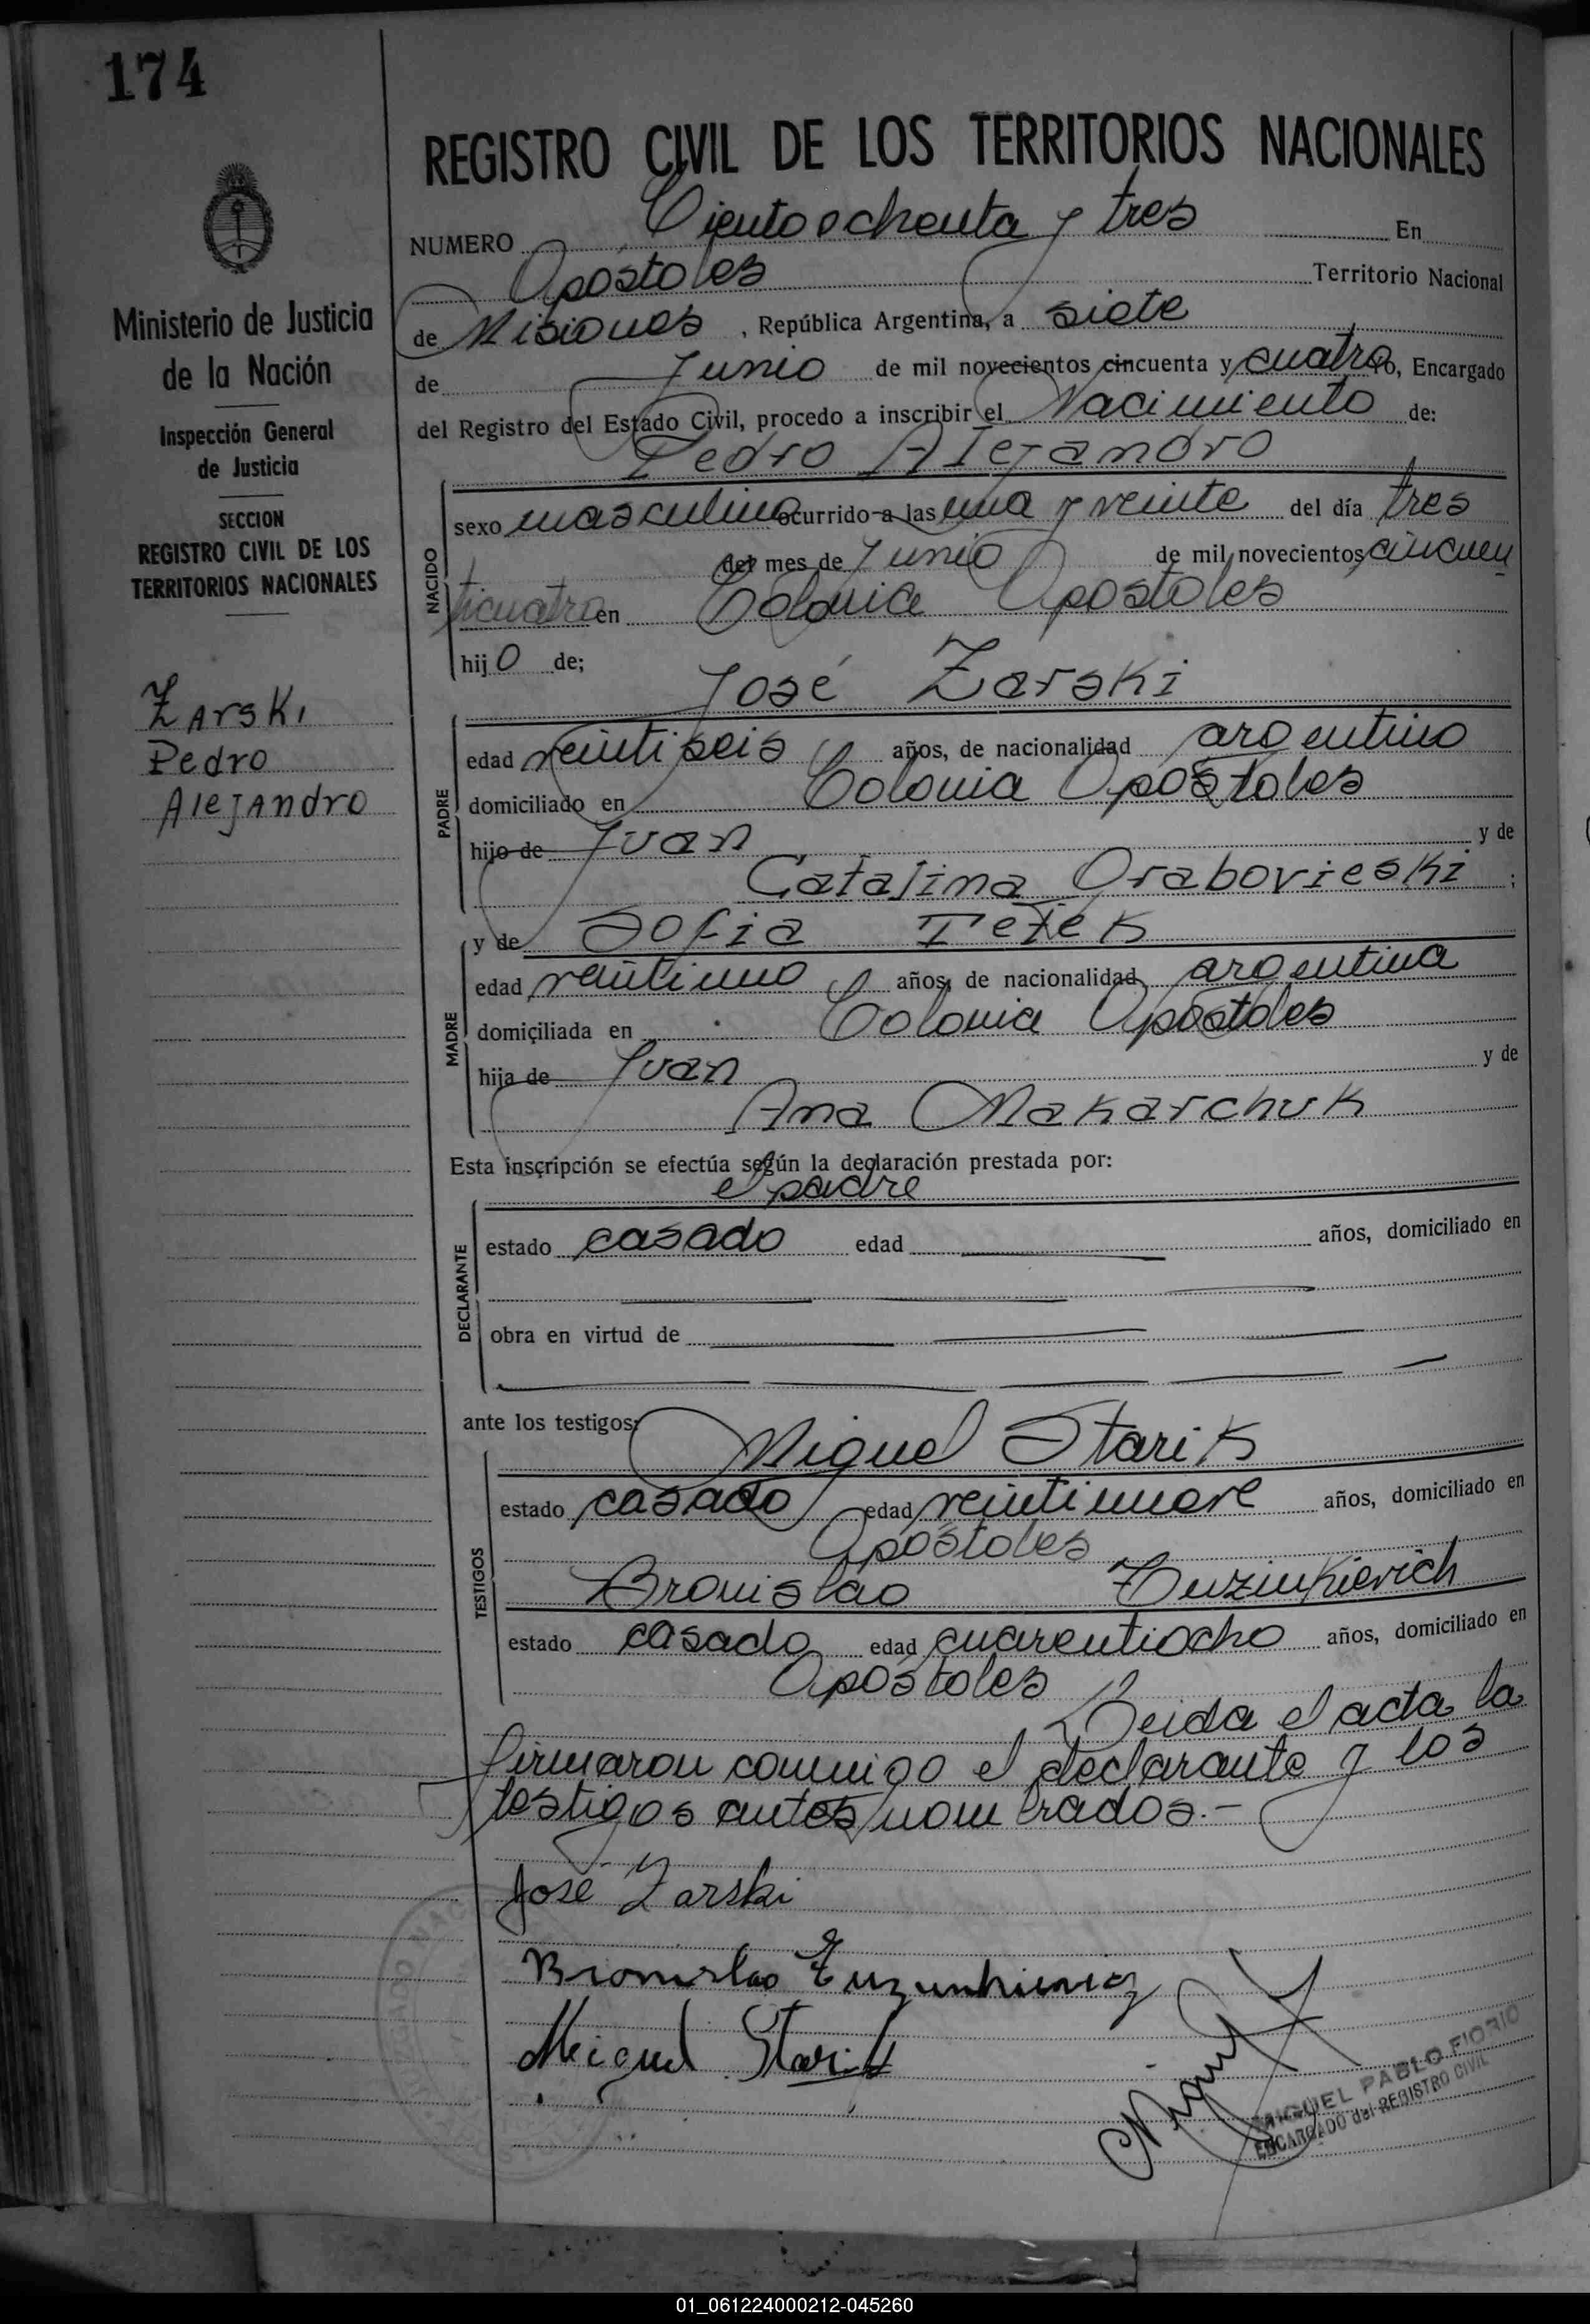 174
REGISTRO CIVIL DE LOS TERRITORIOS NACIONALES
NUMERO Ciento ochenta y tres En
Apóstoles Territorio Nacional
de Misiones, República Argentina, a siete
de Junio de mil novecientos cincuenta y cuatro, Encargado
del Registro del Estado Civil, procedo a inscribir el Nacimiento de:
Pedro Alejandro
NACIDO
sexo masculino ocurrido a las una y veinte del día tres
del mes de Junio de mil novecientos cincuen
ticuatro en Colonia Apóstoles
hijo de;
José Zarski
PADRE
edad veintiseis años, de nacionalidad argentino
domiciliado en Colonia Apóstoles
hijo de Juan y de
Catalina Grabovieski;
y de Sofia Tezek
MADRE
edad veintiuno años, de nacionalidad argentina
domiciliada en Colonia Apóstoles
hija de Juan y de
Ana Makarchuk
Esta inscripción se efectúa según la declaración prestada por:
el padre
DECLARANTE
estado casado edad años, domiciliado en
obra en virtud de
ante los testigos:
Miguel Starik
TESTIGOS
estado casado edad veintinueve años, domiciliado en
Apóstoles
Bronislao Zuzinkievich
estado casado edad cuarentiocho años, domiciliado en
Apóstoles Leida el acta la
firmaron conmigo el declarante y los
testigos antes nombrados.-
José Zarski
Bronislao
Miguel Starik
MIGUEL PABLO FIORIO
ENCARGADO del REGISTRO CIVIL
Ministerio de Justicia
de la Nación
Inspección General
de Justicia
SECCION
REGISTRO CIVIL DE LOS
TERRITORIOS NACIONALES
Zarski
Pedro
Alejandro
01_061224000212-045260